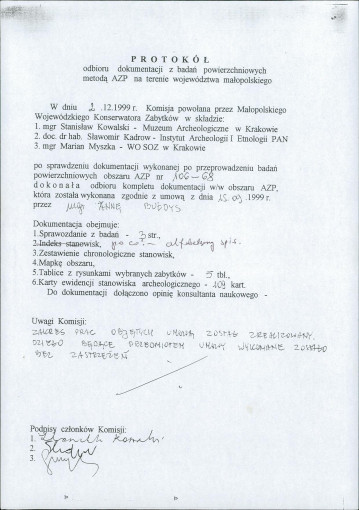 P R O T O K Ó Ł
odbioru dokumentacji z badań powierzchniowych
metodą AZP na terenie województwa małopolskiego
W dniu 2 .12.1999 r. Komisja powołana przez Małopolskiego
Wojewódzkiego Konserwatora Zabytków w składzie:
1. mgr Stanisław Kowalski - Muzeum Archeologiczne w Krakowie
2. doc. dr hab. Sławomir Kadrow - Instytut Archeologii I Etnologii PAN
3. mgr Marian Myszka - WO SOZ w Krakowie
po sprawdzeniu dokumentacji wykonanej po przeprowadzeniu badań
powierzchniowych obszaru AZP nr 106-68
d o k o n a ł a odbioru kompletu dokumentacji w/w obszaru AZP,
która została wykonana zgodnie z umową z dnia 15.03 .1999 r.
przez mgr ANNĘ
Dokumentacja obejmuje:
1.Sprawozdanie z badań - 3 str.,
2.Indeks stanowisk, spis.
3.Zestawienie chronologiczne stanowisk,
4.Mapkę obszaru,
5.Tablice z rysunkami wybranych zabytków - 5 tbl.,
6.Karty ewidencji stanowiska archeologicznego - 109 kart.
Do dokumentacji dołączono opinię konsultanta naukowego -
Uwagi Komisji:
ZAKRES PRAC OBJĘTYCH UMOWĄ ZOSTAŁ ZREALIZOWANY.
DZIEŁO BĘDĄCE PRZEDMIOTEM UMOWY WYKONANE ZOSTAŁO
BEZ ZASTRZEŻEŃ
Podpisy członków Komisji:
1.
2.
3.